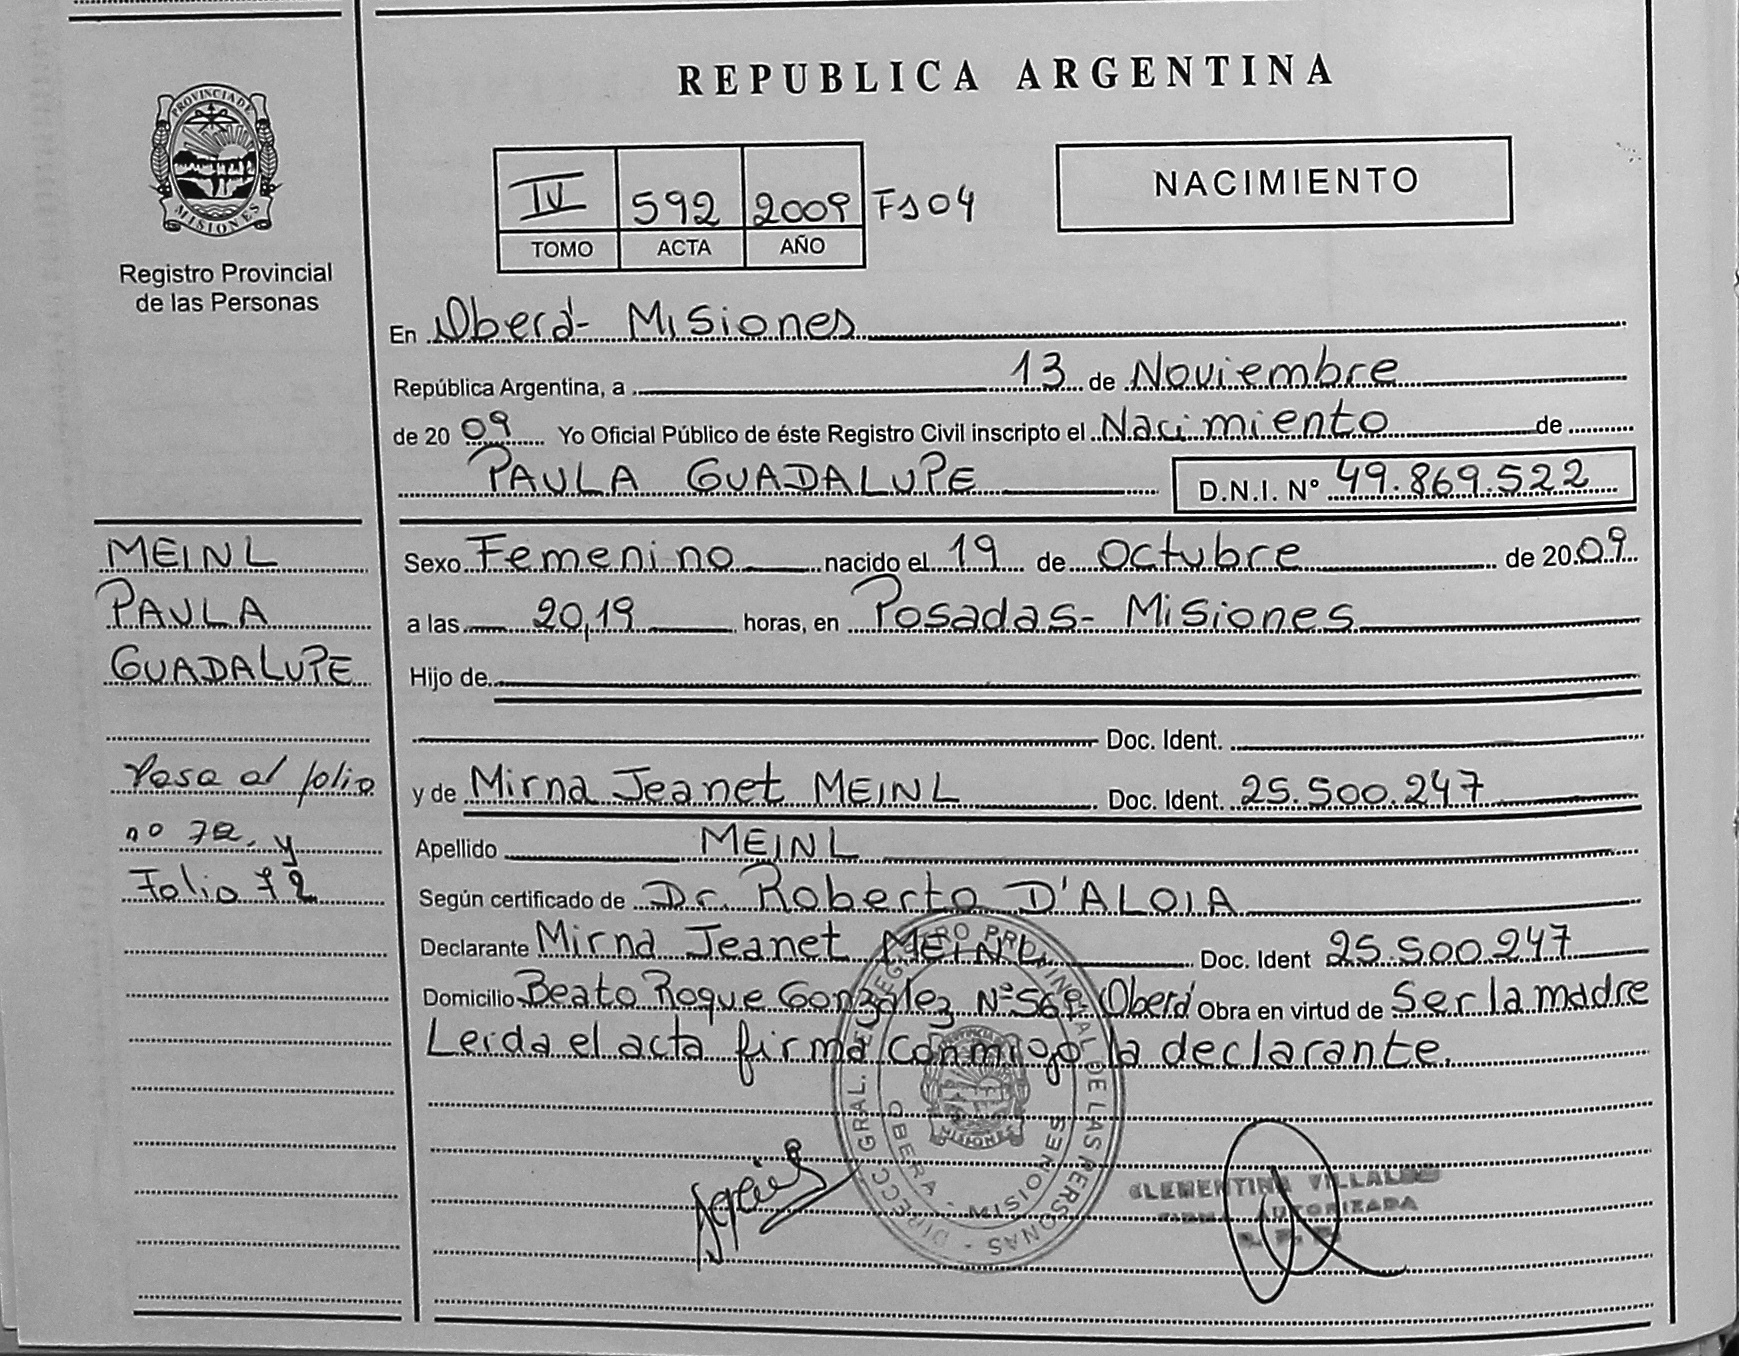 REPUBLICA ARGENTINA
PROVINCIA DE
MISIONES
Registro Provincial
de las Personas
IV 592 2009 Fs04
TOMO ACTA AÑO
NACIMIENTO
En Oberá- Misiones
República Argentina, a 13 de Noviembre
de 20 09 Yo Oficial Público de éste Registro Civil inscripto el Nacimiento de
PAULA GUADALUPE D.N.I. N° 49.869.522
MEINL
PAULA
GUADALUPE
Pasa al folio
nº 72. y
Folio 72
Sexo Femenino nacido el 19 de Octubre de 20 09
a las 20,19 horas, en Posadas- Misiones
Hijo de
Doc. Ident.
y de Mirna Jeanet MEINL Doc. Ident. 25.500.247
Apellido MEINL
Según certificado de Dr. Roberto D'ALOIA
Declarante Mirna Jeanet MEINL Doc. Ident 25.500.247
Domicilio Beato Roque Gonzalez Nº Oberá Obra en virtud de Ser la madre
Leída el acta firma conmigo la declarante.
DIRECC. GRAL. DEL REGISTRO PROVINCIAL DE LAS PERSONAS
OBERA - MISIONES
MISIONES
CLEMENTINA VILLALBA
FIRMA AUTORIZADA